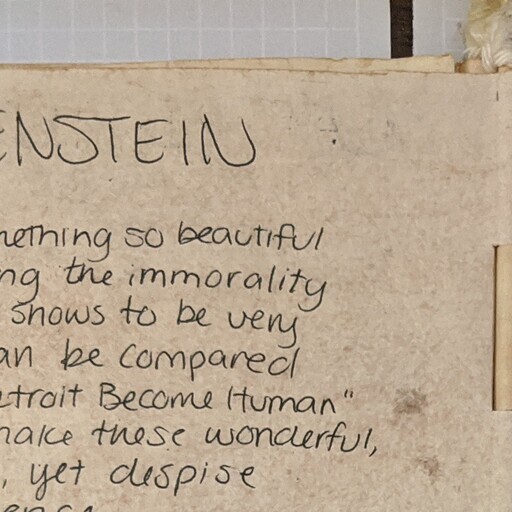 ENSTEIN
nething so beautiful
ng the immorality
snows to be very
an be compared
etroit Become Human"
nake these wonderful,
, yet despise